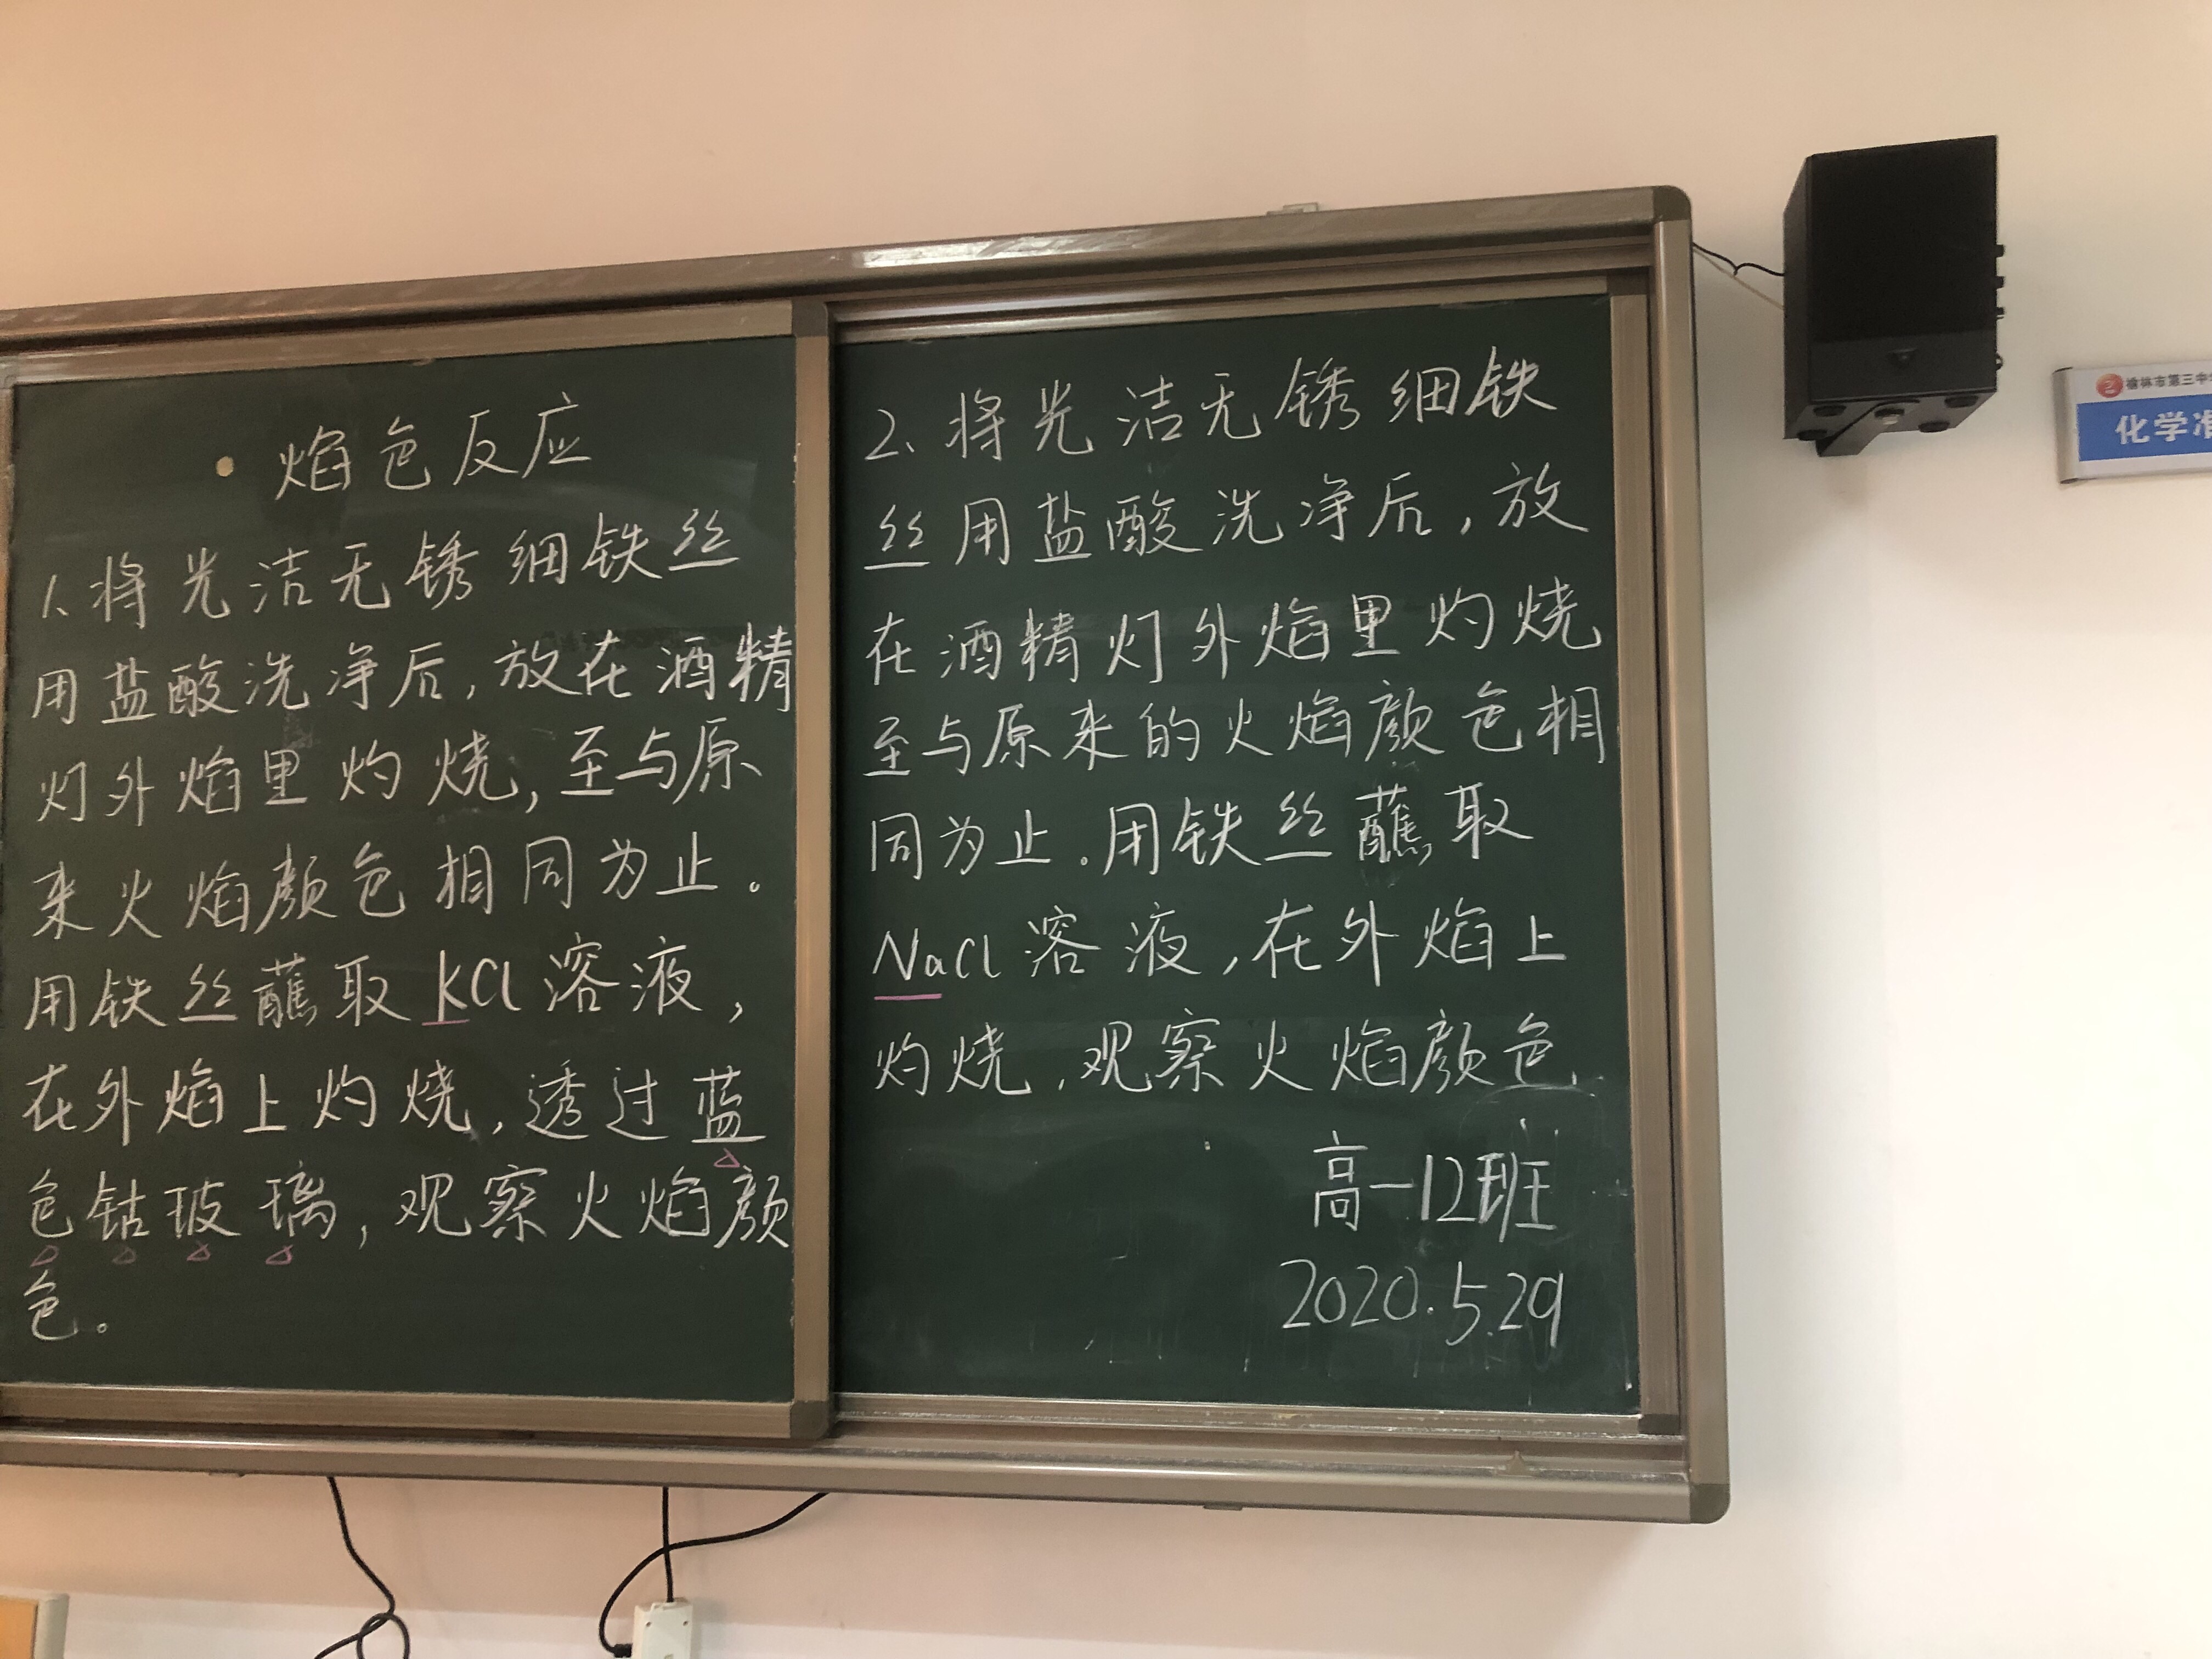 焰色反应
1、将光洁无锈细铁丝
用盐酸洗净后，放在酒精
灯外焰里灼烧，至与原
来火焰颜色相同为止。
用铁丝蘸取KCl溶液，
在外焰上灼烧，透过蓝
色钴玻璃，观察火焰颜
色。
2、将光洁无锈细铁
丝用盐酸洗净后，放
在酒精灯外焰里灼烧
至与原来的火焰颜色相
同为止。用铁丝蘸取
NaCl溶液，在外焰上
灼烧，观察火焰颜色
高一12班
2020.5.29
榆林市第三中
化学准